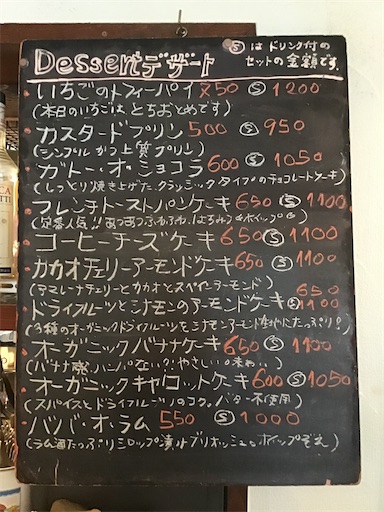 Dessertデザート
Ⓢはドリンク付の
セットの金額です。
いちごのトフィーパイ 850 Ⓢ 1200
(本日のいちごは、とちおとめです)
カスタードプリン 500 Ⓢ 950
(シンプルかつ上質プリン)
ガトー・オ・ショコラ 600 Ⓢ 1050
(しっとり焼き上げた、クラシックタイプのチョコレートケーキ)
フレンチトーストパンケーキ 650 Ⓢ 1100
(定番人気!!あつあつふわふわ、はちみつ&ホイップ
コーヒーチーズケーキ 650 Ⓢ 1100
カカオチェリーアーモンドケーキ 650 Ⓢ 1100
(アマレーナチェリーとカカオとスペインアーモンド)
ドライフルーツとシナモンのアーモンドケーキ 650 Ⓢ 1100
(3種のオーガニックドライフルーツとシナモンアーモンド生地にたっぷり!)
オーガニックバナナケーキ 650 Ⓢ 1100
(バナナ感ハンパない?やさしい味わい、)
オーガニックキャロットケーキ 600 Ⓢ 1050
(スパイスとドライフルーツのコク。バター不使用)
ババ・オ・ラム 550 Ⓢ 1000
(ラム酒たっぷりシロップ漬けブリオッシュ。ホイップぞえ)